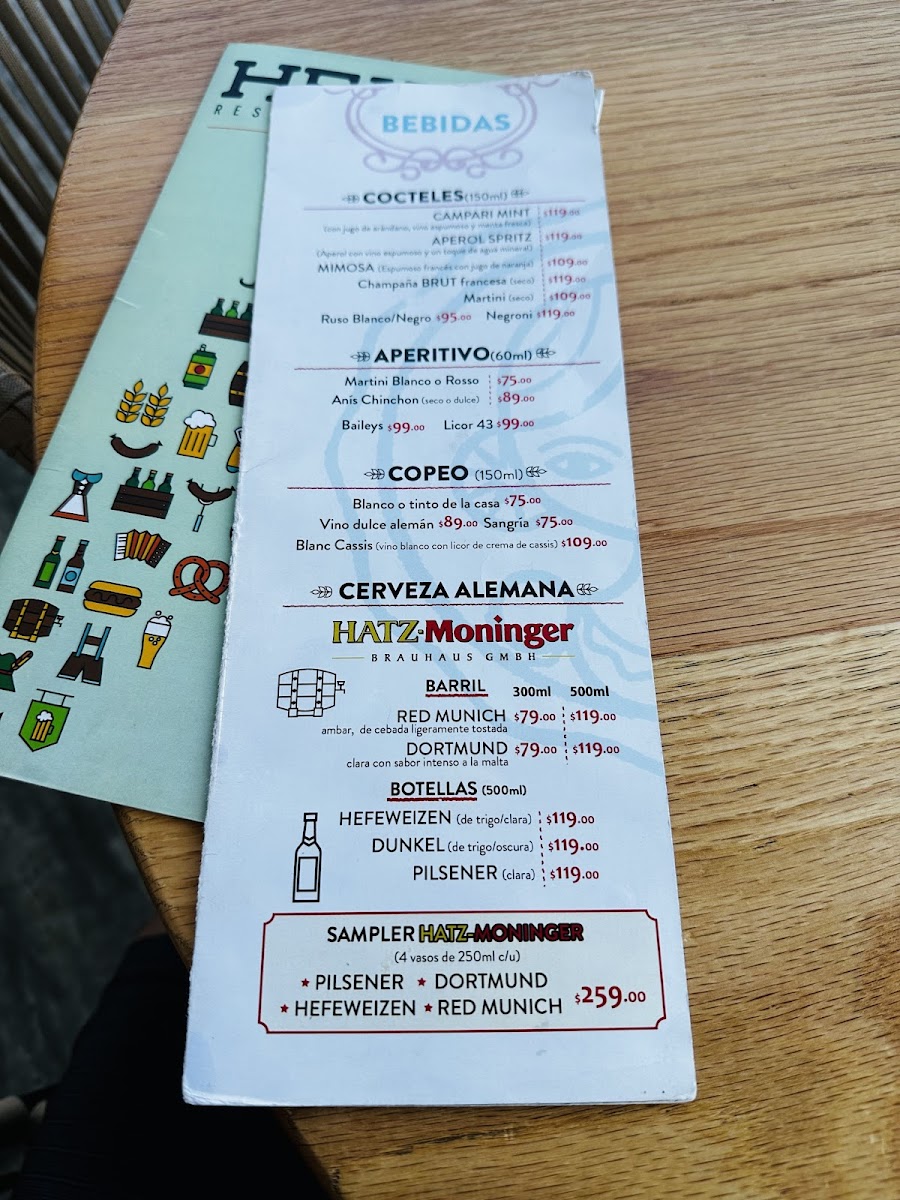 RES
BEBIDAS
COCTELES(150ml)
CAMPARI MINT $119.00
(con jugo de arándano, vino espumoso y menta fresca)
APEROL SPRITZ $119.00
(Aperol con vino espumoso y un toque de agua mineral)
MIMOSA (Espumoso francés con jugo de naranja) $109.00
Champaña BRUT francesa (seco) $119.00
Martini (seco) $109.00
Ruso Blanco/Negro $95.00 Negroni $119.00
APERITIVO(60ml)
Martini Blanco o Rosso $75.00
Anís Chinchon (seco o dulce) $89.00
Baileys $99.00 Licor 43 $99.00
COPEO (150ml)
Blanco o tinto de la casa $75.00
Vino dulce alemán $89.00 Sangría $75.00
Blanc Cassis (vino blanco con licor de crema de cassis) $109.00
CERVEZA ALEMANA
HATZ-Moninger
BRAUHAUS GMBH
BARRIL 300ml 500ml
RED MUNICH $79.00 $119.00
ambar, de cebada ligeramente tostada
DORTMUND $79.00 $119.00
clara con sabor intenso a la malta
BOTELLAS (500ml)
HEFEWEIZEN (de trigo/clara) $119.00
DUNKEL (de trigo/oscura) $119.00
PILSENER (clara) $119.00
SAMPLER HATZ-MONINGER
(4 vasos de 250ml c/u)
★ PILSENER ★ DORTMUND
★ HEFEWEIZEN ★ RED MUNICH $259.00